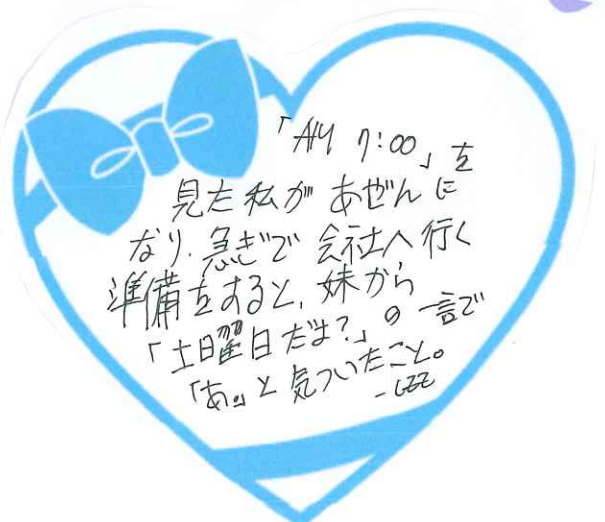 「AM 7:00」を
見た私が あぜんに
なり、急ぎで 会社へ行く
準備をすると、妹から
「土曜日だよ?」の一言で
「あ。」と気づいたこと。